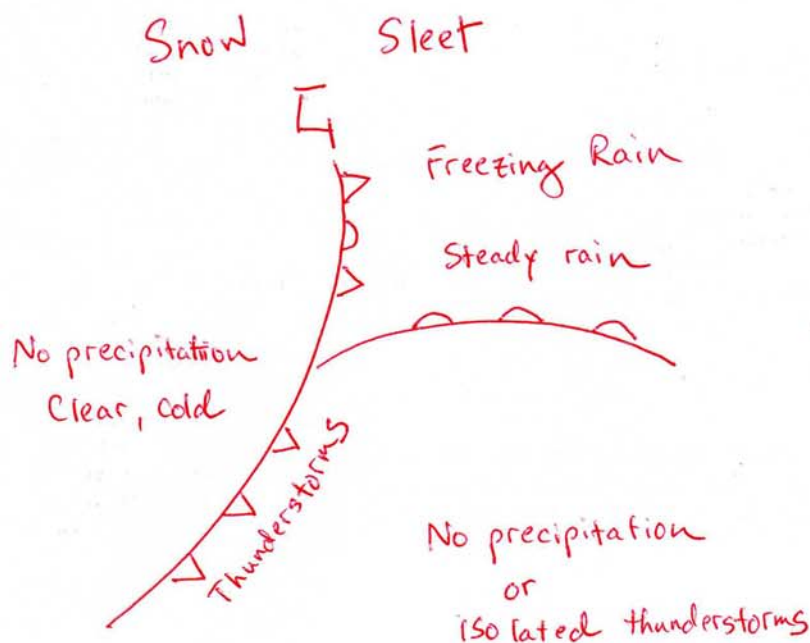 Snow Sleet
L
Freezing Rain
Steady rain
No precipitation
Clear, cold
Thunderstorms
No precipitation
or
isolated thunderstorms